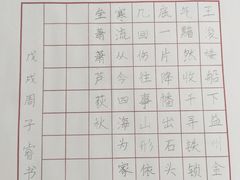 王楼船下益州金
气黯然收千寻铁锁
底一片降幡出石头
几回伤往事山形依
寒流从今四海为家
垒萧萧芦荻秋
戊戌周子睿书